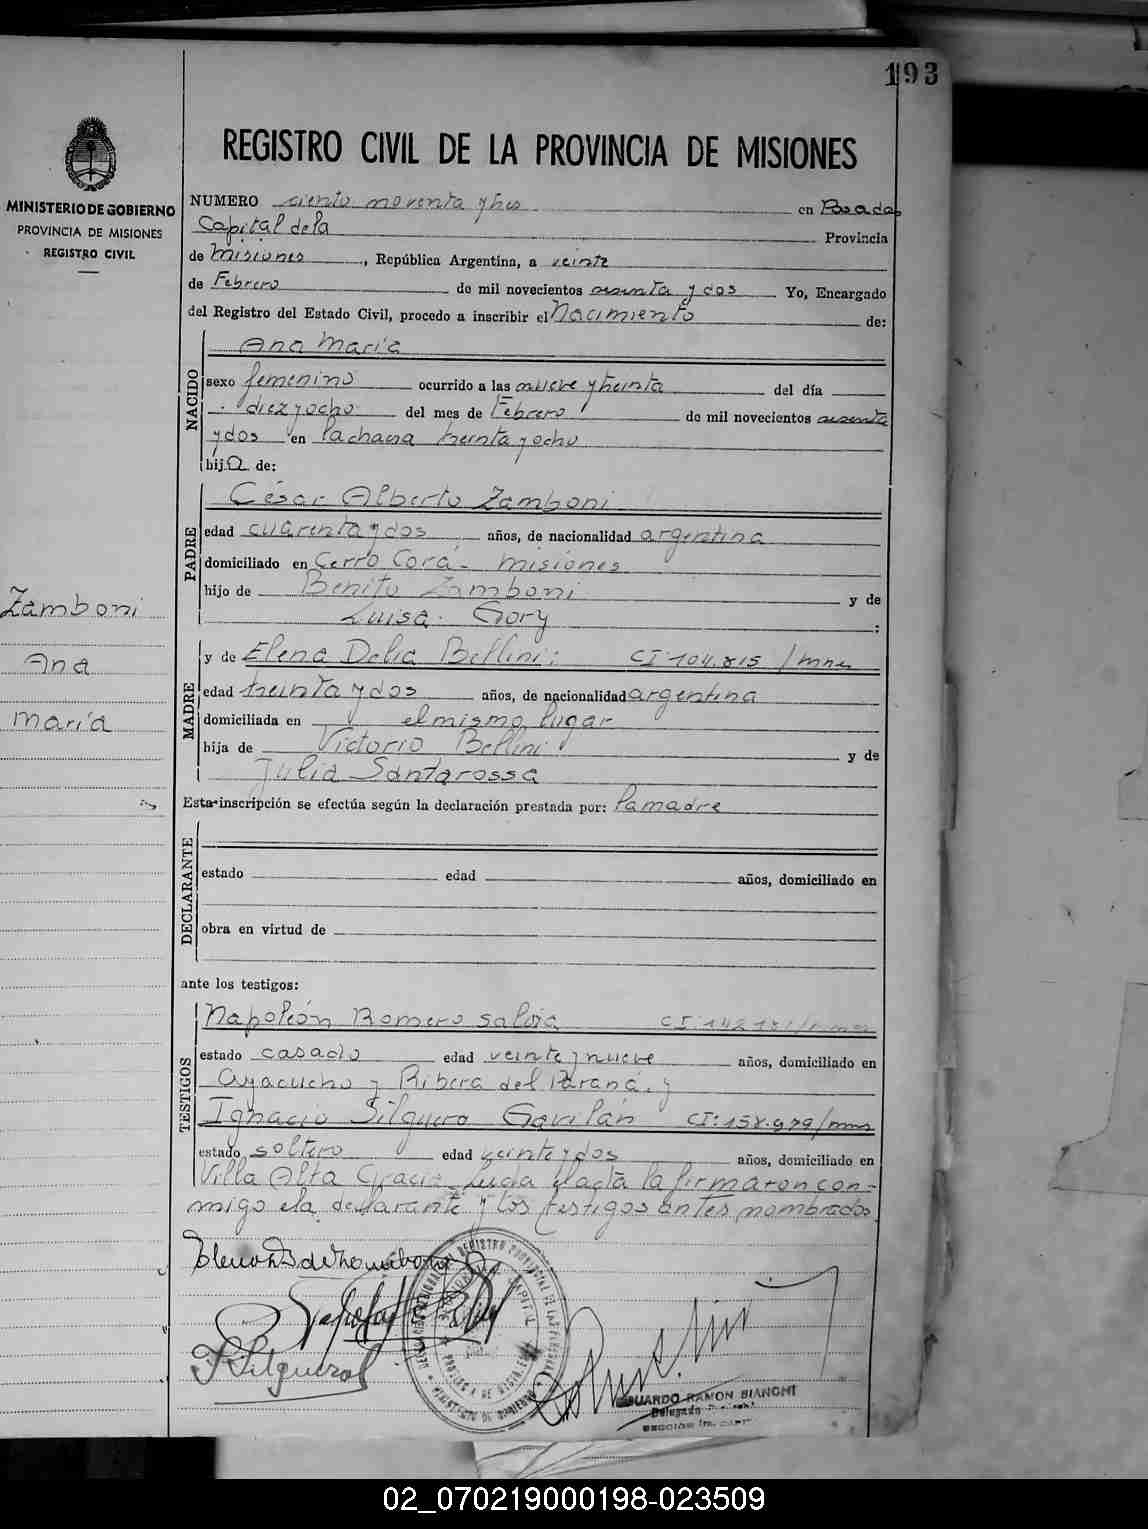 193
REGISTRO CIVIL DE LA PROVINCIA DE MISIONES
MINISTERIO DE GOBIERNO
PROVINCIA DE MISIONES
REGISTRO CIVIL
NUMERO ciento noventa y tres en Posadas
Capital de la Provincia
de Misiones, República Argentina, a veinte
de Febrero de mil novecientos sesenta y dos Yo, Encargado
del Registro del Estado Civil, procedo a inscribir el Nacimiento de:
NACIDO
Ana María
sexo femenino ocurrido a las nueve y treinta del día
diez y ocho del mes de Febrero de mil novecientos sesenta
y dos en Lachaera treinta y ocho
hija de:
PADRE
César Alberto Zamboni
edad cuarenta y dos años, de nacionalidad argentina
domiciliado en Cerro Corá - Misiones
hijo de Benito Zamboni y de
Luisa Gory :
Zamboni
Ana
María
MADRE
y de Elena Delia Bellini: CI 104.815 / mnes
edad treinta y dos años, de nacionalidad argentina
domiciliada en el mismo lugar
hija de Victorio Bellini y de
Julia Santarossa
Esta inscripción se efectúa según la declaración prestada por: la madre
DECLARANTE
estado edad años, domiciliado en
obra en virtud de
ante los testigos:
TESTIGOS
Napoleón Romero Salvia CI:
estado casado edad veinte y nueve años, domiciliado en
Ayacucho y Ribera del Paraná. y
Ignacio Silguero Gavilán CI: 158.979/mnes
estado soltero edad veinte y dos años, domiciliado en
Villa Alta Gracia - Leida el acta la firmaron con-
migo el a declarante y los testigos antes nombrados
Elena B de Zamboni
I Silguero
EDUARDO RAMON BIANCHI
Delegado
02_070219000198-023509